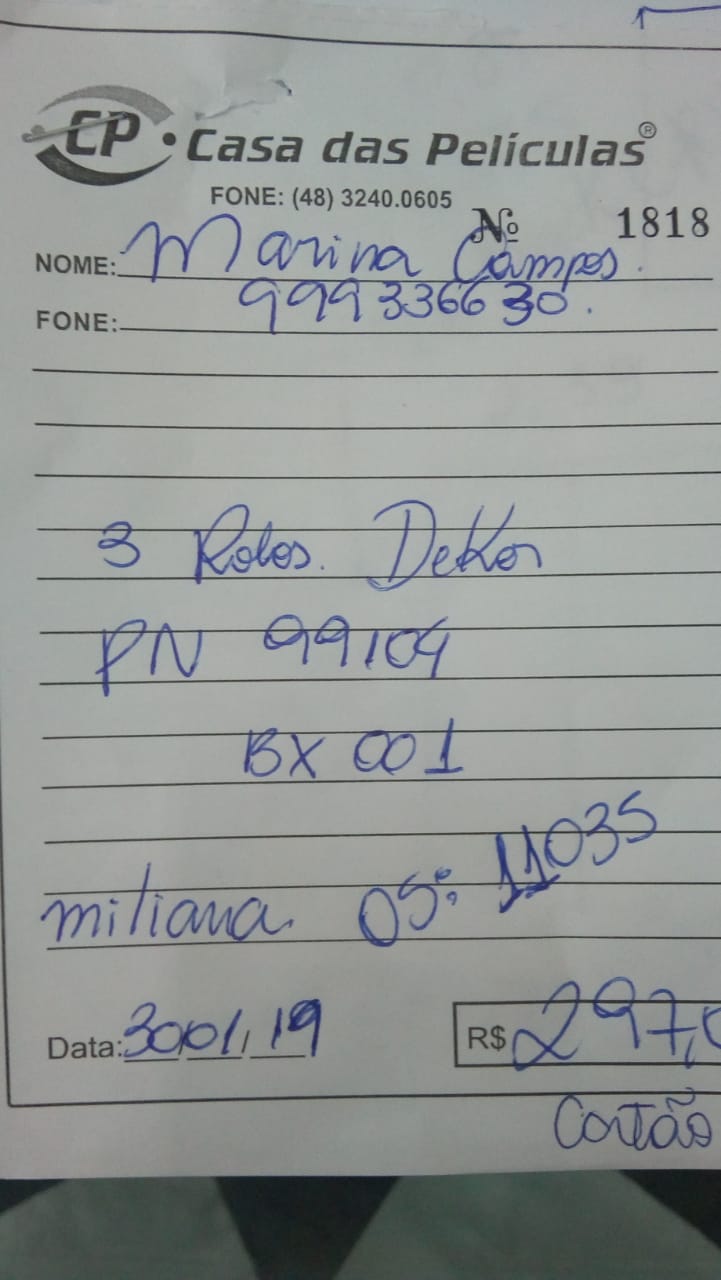 CP • Casa das Películas®
FONE: (48) 3240.0605
Nº 1818
NOME: Marina Campos.
FONE: 999336630.
3 Rolos. DeKor
PN 99104
BX 001
miliana. OS: 11035
Data: 30/01/19 R$ 297,0
Cartão